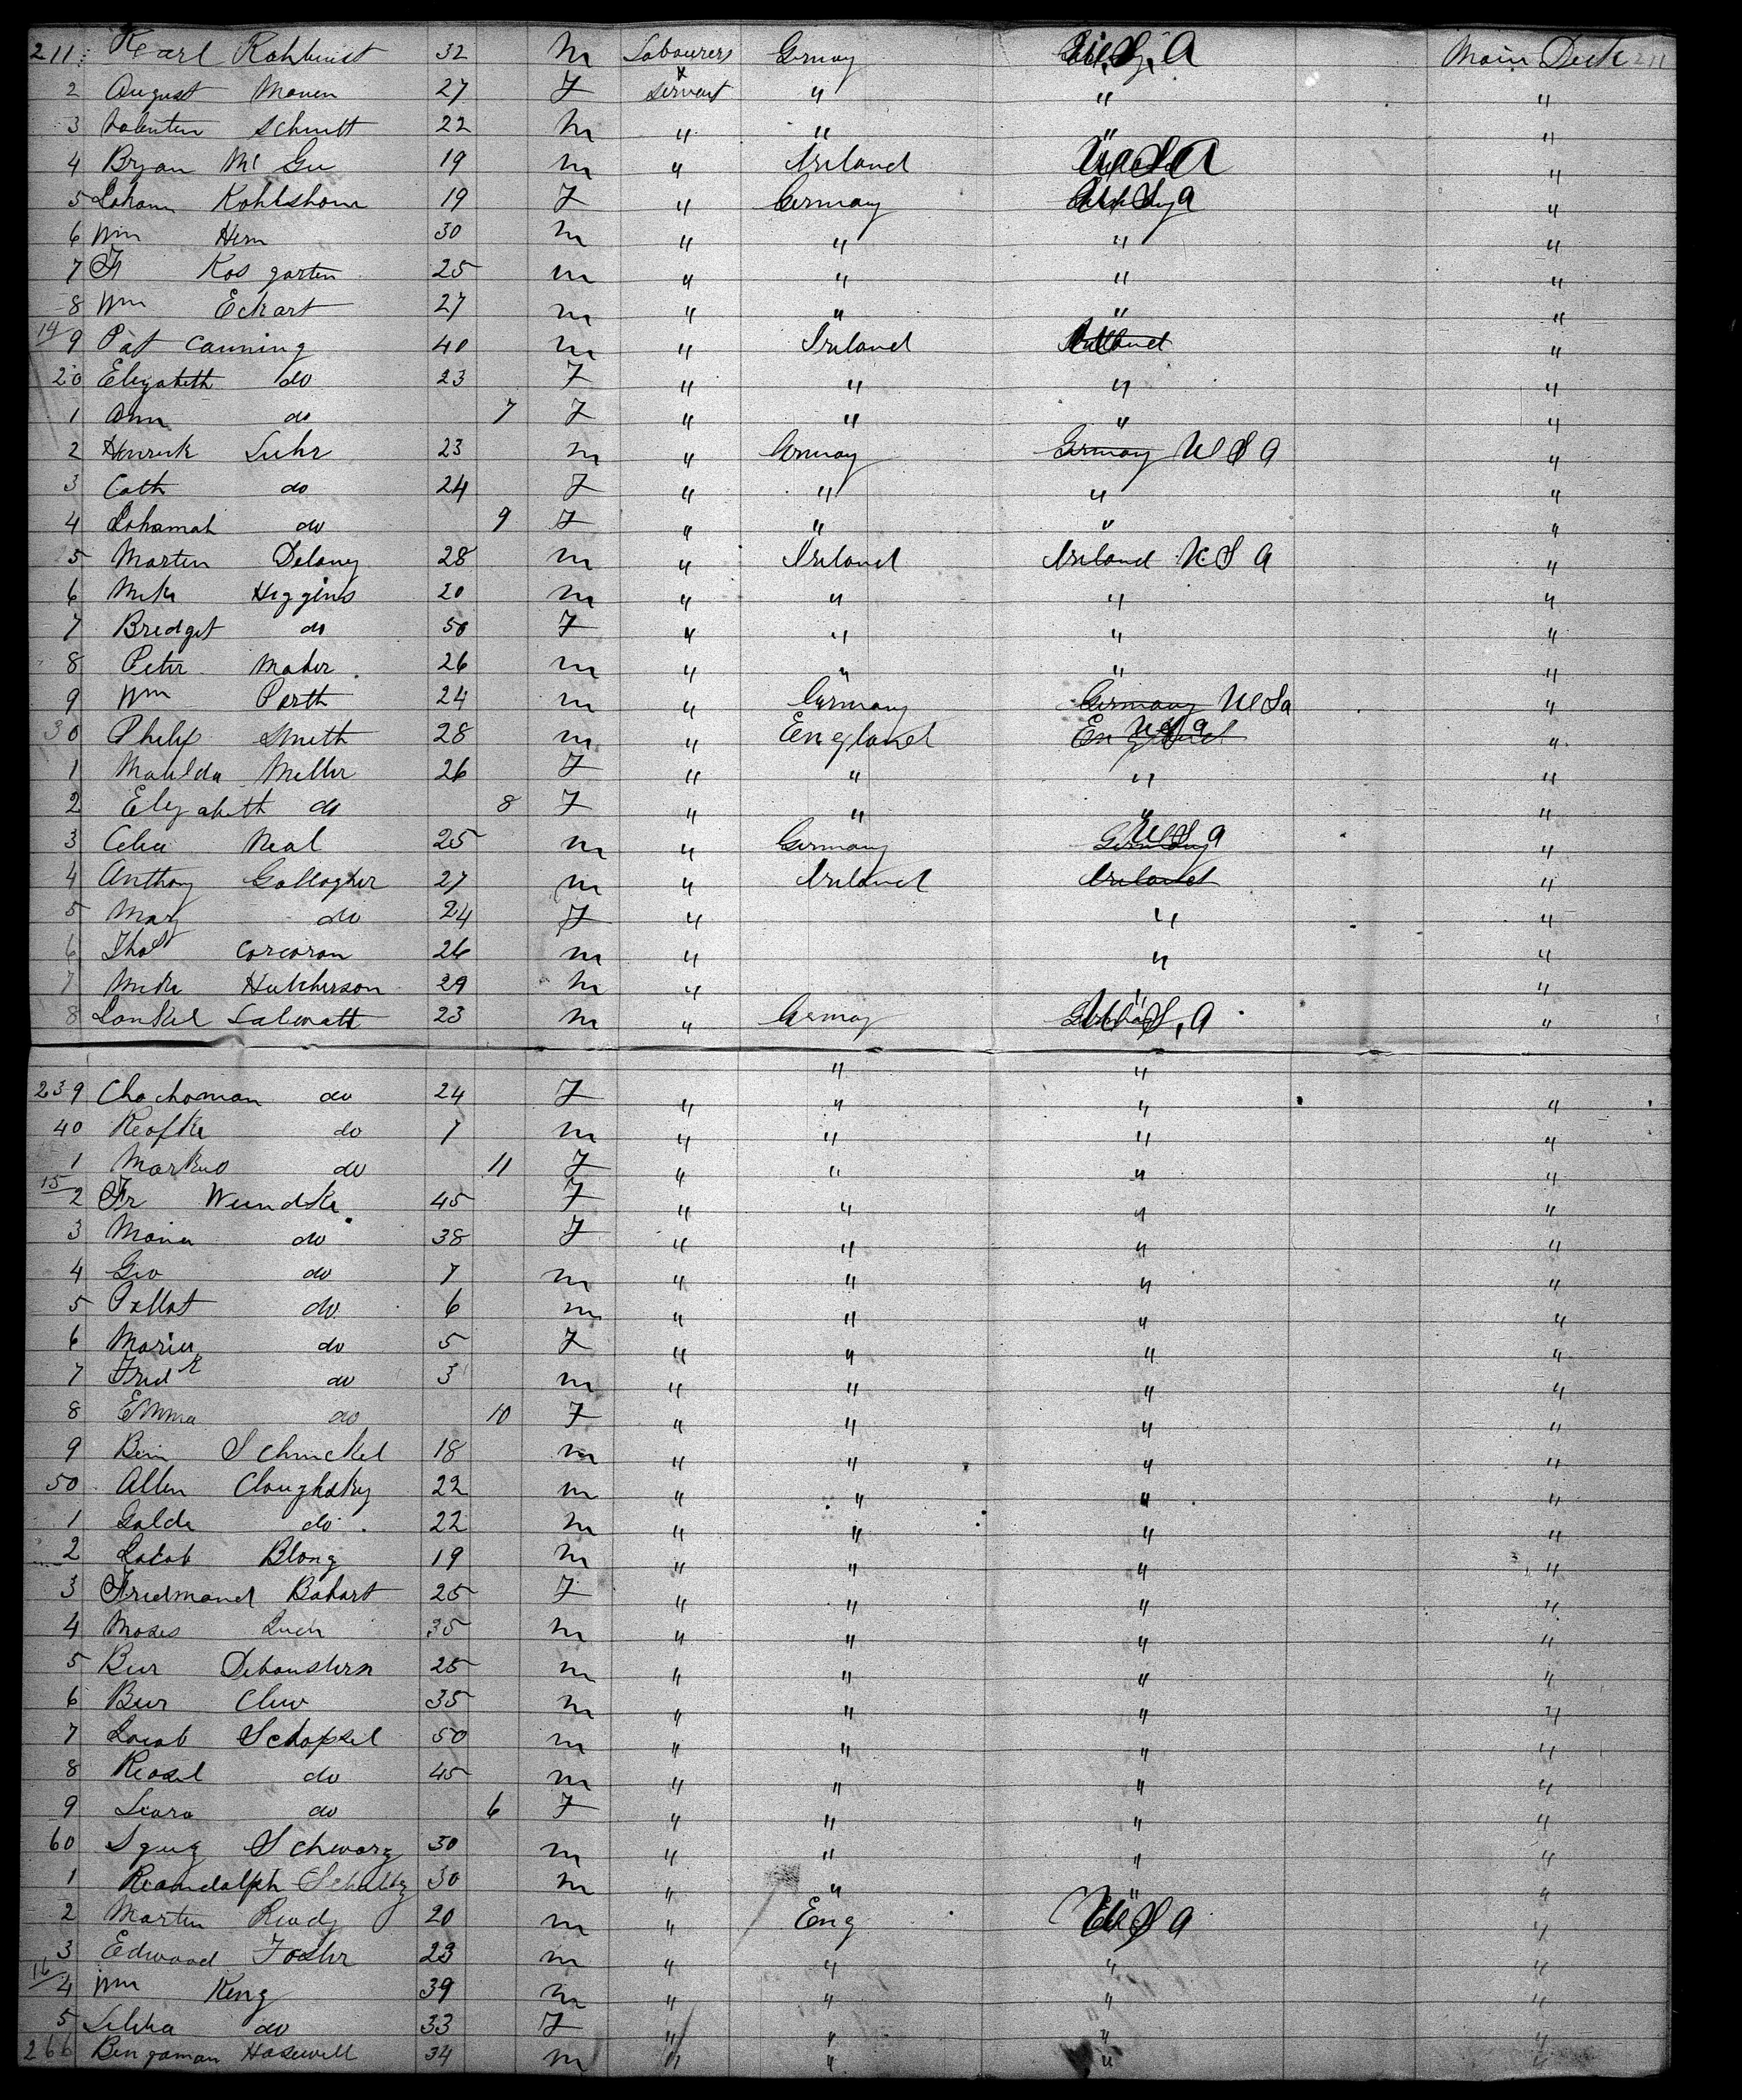 211 Karl 32 m Labourers Grmay U.S.A Main Deck 211
2 August Manen 27 F Servant " " "
3 Schmitt 22 m " " " "
4 Bryan Mc Gee 19 m " Ireland U S A "
5 Kohlshorn 19 F " Germay U S a "
6 Wm Hern 30 m " " " "
7 Fr Kos garten 25 m " " " "
8 Wm Eckart 27 m " " " "
14/ 9 Pat Canning 40 m " Ireland Ireland "
20 Elizabeth do 23 F " " " "
1 Ann do 7 F " " " "
2 Henrik Luhr 23 m " Germay Germay U S A "
3 Cath do 24 F " " " "
4 Johamah do 9 F " " " "
5 Marten Delaney 28 m " Ireland Ireland U S A "
6 Mike Higgins 20 m " " " "
7 Bridget do 50 F " " " "
8 Peter Maher 26 m " " " "
9 Wm Perth 24 m " Germany Germany U S a "
30 Philip Smith 28 m " England England U S a "
1 Matilda Miller 26 F " " " "
2 Elizabeth do 8 F " " " "
3 Neal 25 m " Germany Germany U S a "
4 Anthony Gallagher 27 m " Ireland Ireland "
5 Mary do 24 F " " "
6 Thos Corcoran 26 m " " "
7 Mike Hutcherson 29 m " " "
8 23 m " Germay U S, A "
" "
239 Chachoman do 24 F " " " "
40 do 1 m " " " "
1 Markus do 11 F " " " "
15/ 2 Fr Wendke 45 F " " " "
3 Maria do 38 F " " " "
4 Geo do 7 m " " " "
5 do 6 m " " " "
6 Maria do 5 F " " " "
7 Fredk do 3 m " " " "
8 Emma do 10 F " " " "
9 Schmckel 18 m " " " "
50 Allen Cloughsky 22 m " " " "
1 Golde do 22 m " " " "
2 Jacob Blong 19 m " " " "
3 Fridmand Bahart 25 F " " " "
4 Moses 35 m " " " "
5 Ber 25 m " " " "
6 Ber 35 m " " " "
7 Jacob Schapsel 50 m " " " "
8 do 45 m " " " "
9 do 6 F " " " "
60 Schwarz 30 m " " " "
1 Reamdalph Schultz 30 m " " " "
2 Marten Ready 20 m " Eng U S a "
3 Edward Foster 23 m " " " "
16/ 4 Wm King 39 m " " " "
5 do 33 F " " " "
266 Bengaman Hasewell 34 m " " " "